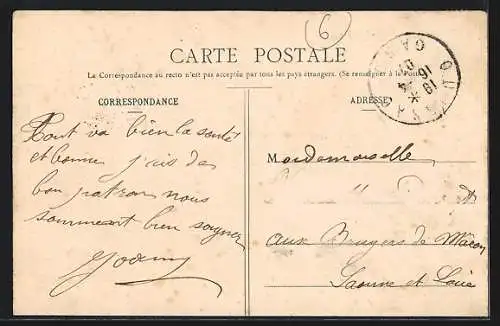 6
CARTE POSTALE
La Correspondance au recto n'est pas acceptée par tous les pays étrangers. (Se renseigner à la Poste)
CORRESPONDANCE
ADRESSE
Tout va bien la santé
et bonne j'ais de
bon patron nous
sommest bien soigner
Mademoiselle
" "
aux Bruyers de Mâcon
Saonne et Loire